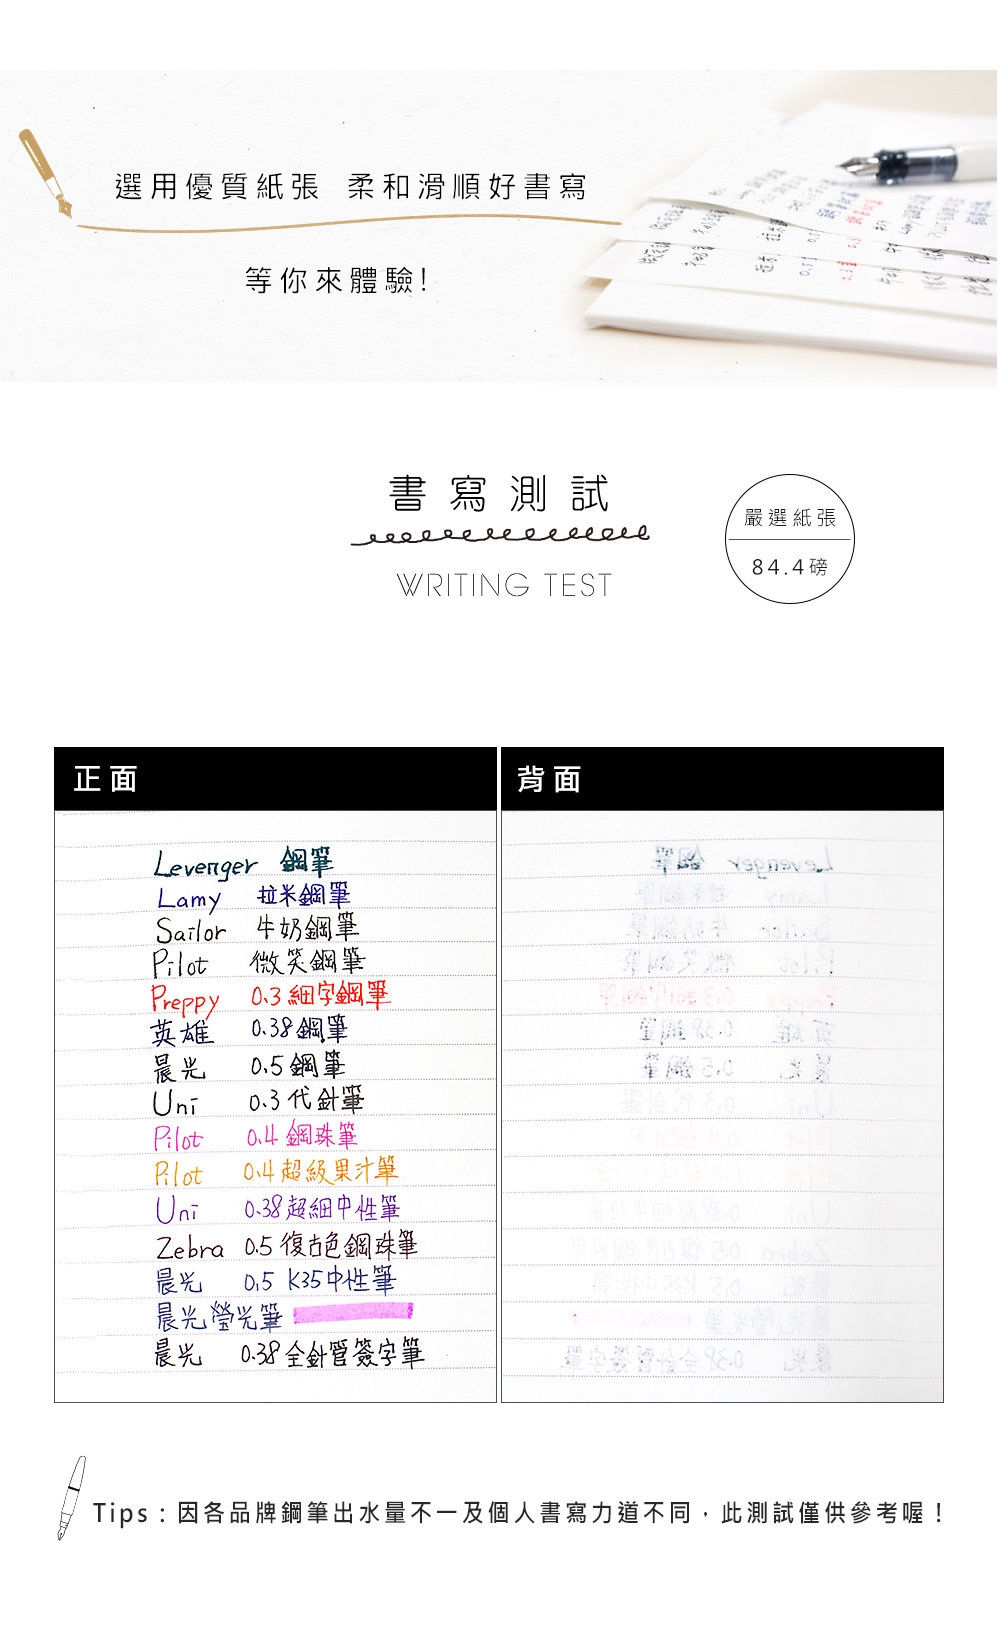 選用優質紙張 柔和滑順好書寫
等你來體驗!
書寫測試
WRITING TEST
嚴選紙張
84.4磅
正面
背面
Levenger 鋼筆
Lamy 拉米鋼筆
Sailor 牛奶鋼筆
Pilot 微笑鋼筆
Preppy 0.3 細字鋼筆
英雄 0.38 鋼筆
晨光 0.5 鋼筆
Uni 0.3 代針筆
Pilot 0.4 鋼珠筆
Pilot 0.4 超級果汁筆
Uni 0.38 超細中性筆
Zebra 0.5 復古色鋼珠筆
晨光 0.5 K35 中性筆
晨光螢光筆
晨光 0.38 全針管簽字筆
Tips : 因各品牌鋼筆出水量不一及個人書寫力道不同，此測試僅供參考喔！